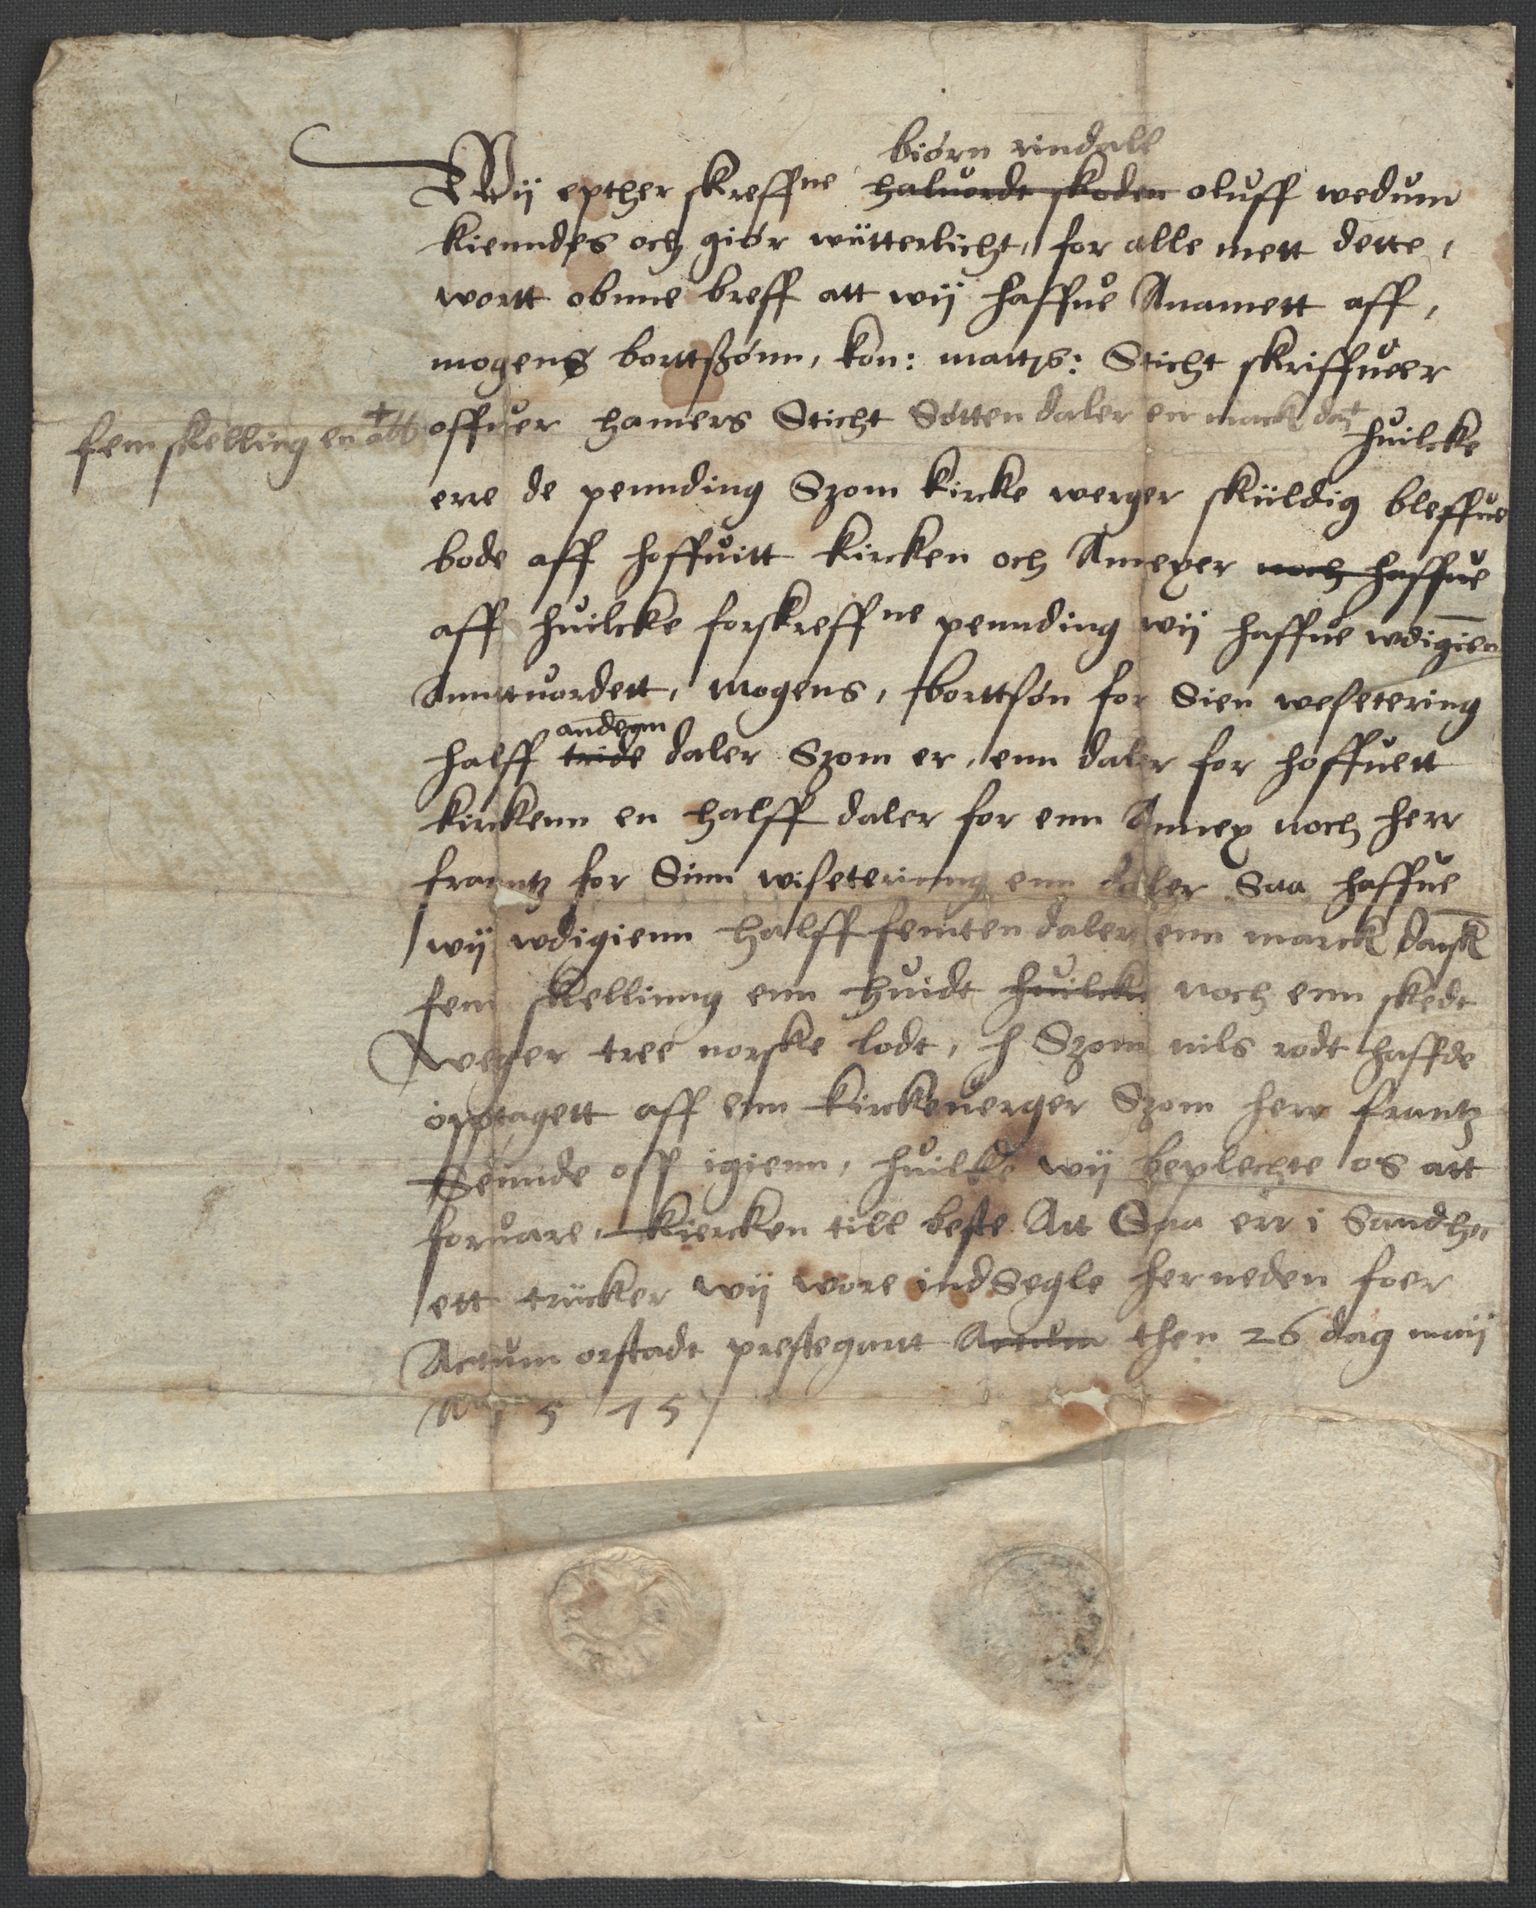 biørn rindall
Wij epther skreffne haluordt skoden oluff wedum
kienndes och giør wütterlicht, for alle mett dette,
wortt obnne breff att wij haffue Anamett aff,
mogens borttßønn, kon: mattʒ: Sticht skriffueer
offuer hamers Sticht Søtten daler en marck da+ huilcke
fem skelling en +att
erre de pennding Szom kircke werger sküldig bleffue
bode aff hoffuitt kircken och Amexer noch haffue
aff huilcke forskreffne pennding wij haffue wdigien
Anntuordett, mogens, borttsøn for Sien wesetering
andenn
halff tride daler Szom er, enn daler for hoffuett
kirckenn en halff daler for enn Annex noch herr
franntz for Sinn wiseterinng enn daler Saa haffue
wij wdigienn halff femten daler enn marck dansk
fem skellinng enn huidt huilcke noch enn skedt
weger tree norske lodt, h Szom nils rodt haffde
opptagett aff enn kirckeuerger Szom herr frantz
Seunde oss igienn, huilcke wij beplechte os att
foruare, kiercken till beste Att Saa err i Sandhe
ett trücker wij wore indSegle her neden foer
Actum orstadt prestegartt Actum then 26 dag maij
Anno 1575